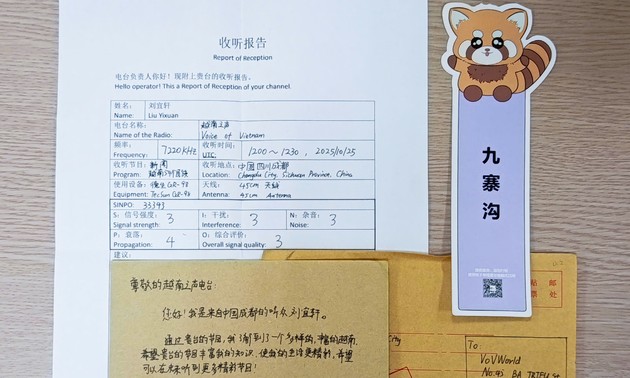 收听报告
Report of Reception
电台负责人你好！现附上贵台的收听报告。
Hello operator! This a Report of Reception of your channel.
姓名： 刘宜轩
Name: Liu Yixuan
电台名称： 越南之声
Name of the Radio: Voice of Vietnam
频率： 收听时间：
Frequency: 7220 KHz UTC: 1200～1230，2025/10/25
收听节目：新闻 收听地点：中国四川成都
Program: Location: Chengdu City, Sichuan Province, China
使用设备：德生GR-98 天线： 45cm 天线
Equipment: Tecsun GR-98 Antenna: 45cm Antenna
SINPO： 33343
S：信号强度： 3 I：干扰： 3 N：杂音： 3
Signal strength: Interference: Noise:
P：衰落： 4 O：综合评价： 3
Propagation: Overall signal quality:
建议：
尊敬的越南之声电台：
您好！我是来自中国成都的听众刘宜轩。
通过贵台的节目，我了解到了一个多样的、丰富的越南。
希望贵台的节目丰富我的知识，使我的生活更精彩。希望
可以在未来听到更多精彩节目！
九寨沟
贴 邮
票 处
To
VOVWorld
No.45 BA TRIEU St